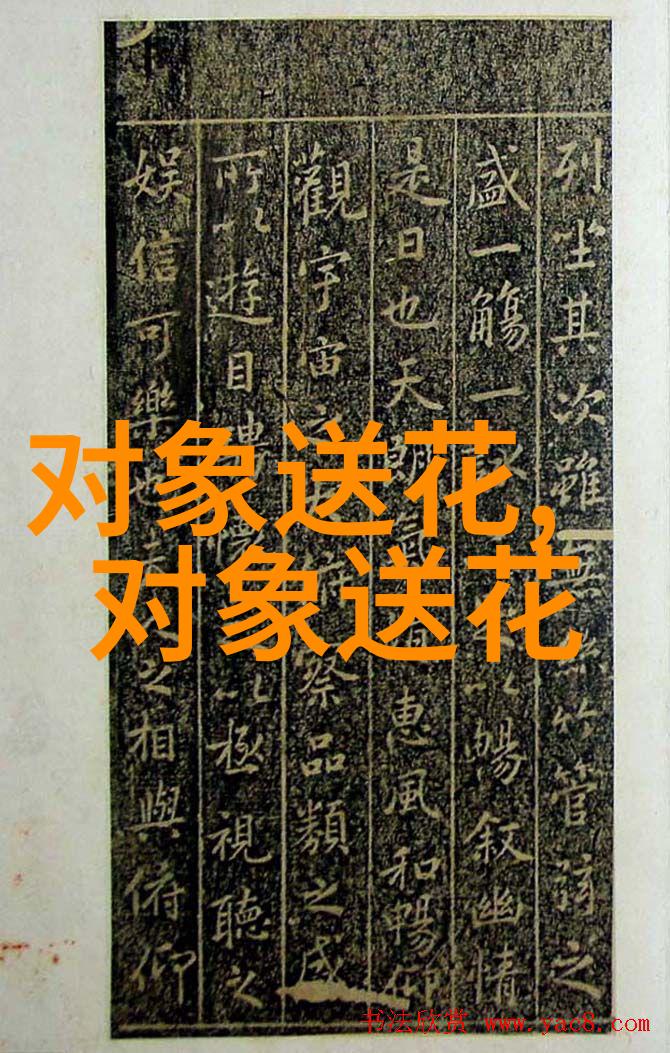 列坐其次雖無絲竹管弦之
盛一觴一以暢叙幽情
是日也天朗惠風和暢仰
觀宇宙之察品類之盛
所以遊目騁以極視聽之
娛信可樂也之相與俯仰
对象送花,
对象送花
书法欣赏 www.yac8.com